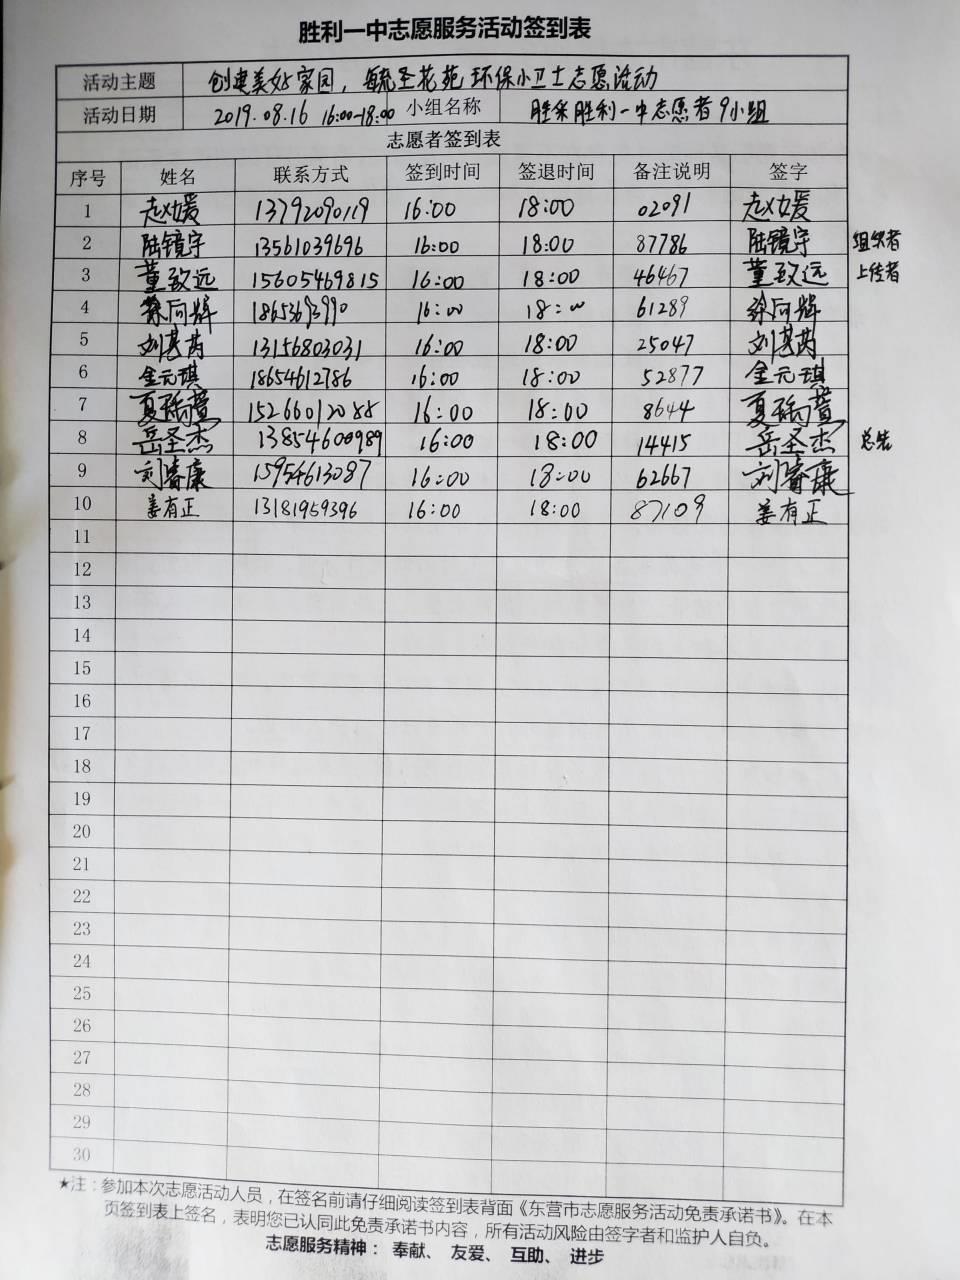 胜利一中志愿服务活动签到表
活动主题 创建美好家园，毓圣花苑环保小卫士志愿活动
活动日期 2019.08.16 16:00-18:00 小组名称 胜采胜利一中志愿者9小组
志愿者签到表
序号 姓名 联系方式 签到时间 签退时间 备注说明 签字
1 赵媛 13792090119 16:00 18:00 02091 赵媛
2 陆镜宇 13561039696 16:00 18:00 87786 陆镜宇 组织者
3 董致远 15605469815 16:00 18:00 46467 董致远 上传者
4 徐向辉 16:00 18:00 61289 徐向辉
5 刘 13156803031 16:00 18:00 25047 刘
6 金元琪 18654612786 16:00 18:00 52877 金元琪
7 夏瑀萱 15266012088 16:00 18:00 8644 夏瑀萱
8 岳圣杰 13854600989 16:00 18:00 14415 岳圣杰 总结
9 刘睿康 15954613087 16:00 18:00 62667 刘睿康
10 姜有正 13181959396 16:00 18:00 87109 姜有正
11
12
13
14
15
16
17
18
19
20
21
22
23
24
25
26
27
28
29
30
★注：参加本次志愿活动人员，在签名前请仔细阅读签到表背面《东营市志愿服务活动免责承诺书》。在本
页签到表上签名，表明您已认同此免责承诺书内容，所有活动风险由签字者和监护人自负。
志愿服务精神： 奉献、 友爱、 互助、 进步